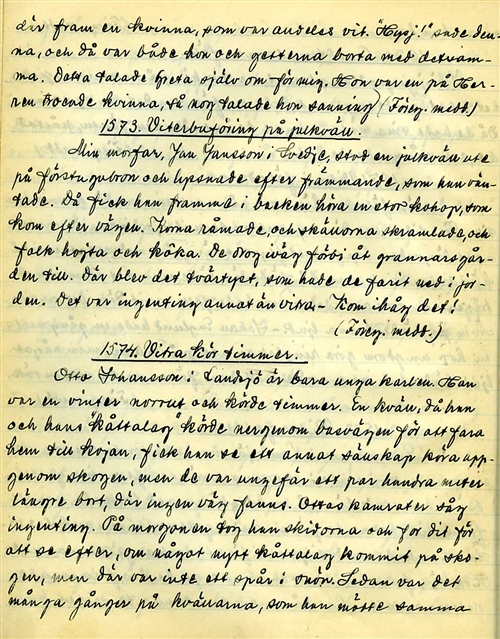 där fram en kvinna, som var andeles vit. "Hysj!" sade den-
na, och då var både hon och getterna borta med detsam-
ma. Detta talade Greta själv om för mig. Hon var en på Her-
ren troende kvinna, så nog talade hon sanning (Föreg. medd.)
1573. Viterbuföring på julkväll.
Min morfar, Jan Jansson i Svedje, stod en julkväll ute
på förstugubron och lyssnade efter främmande, som han vän-
tade. Då fick han framme i backen höra en stor kohop, som
kom efter vägen. Korna råmade, och skällorna skramlade, och
folk hojta och köka. De drog iväg förbi åt grannarsgår-
den till. Där blev det tvärtyst, som hade de farit ned i jor-
den. Det var ingenting annat än vitra. - Kom ihåg det!
(Föreg. medd.)
1574. Vitra kör timmer.
Otto Johansson i Landsjö är bara unga karlen. Han
var en vinter norrut och körde timmer. En kväll, då han
och hans "kåttalag" körde nergenom basvägen för att fara
hem till kojan, fick han se ett annat sånskap köra upp-
genom skogen, men de var ungefär ett par hundra meter
längre bort, där ingen väg fanns. Ottos kamrater såg
ingenting. På morgonen tog han skidorna och for dit för
att se efter, om något nytt kåttalag kommit på sko-
gen, men där var inte ett spår i snön. Sedan var det
många gånger på kvällarna, som han mötte samma